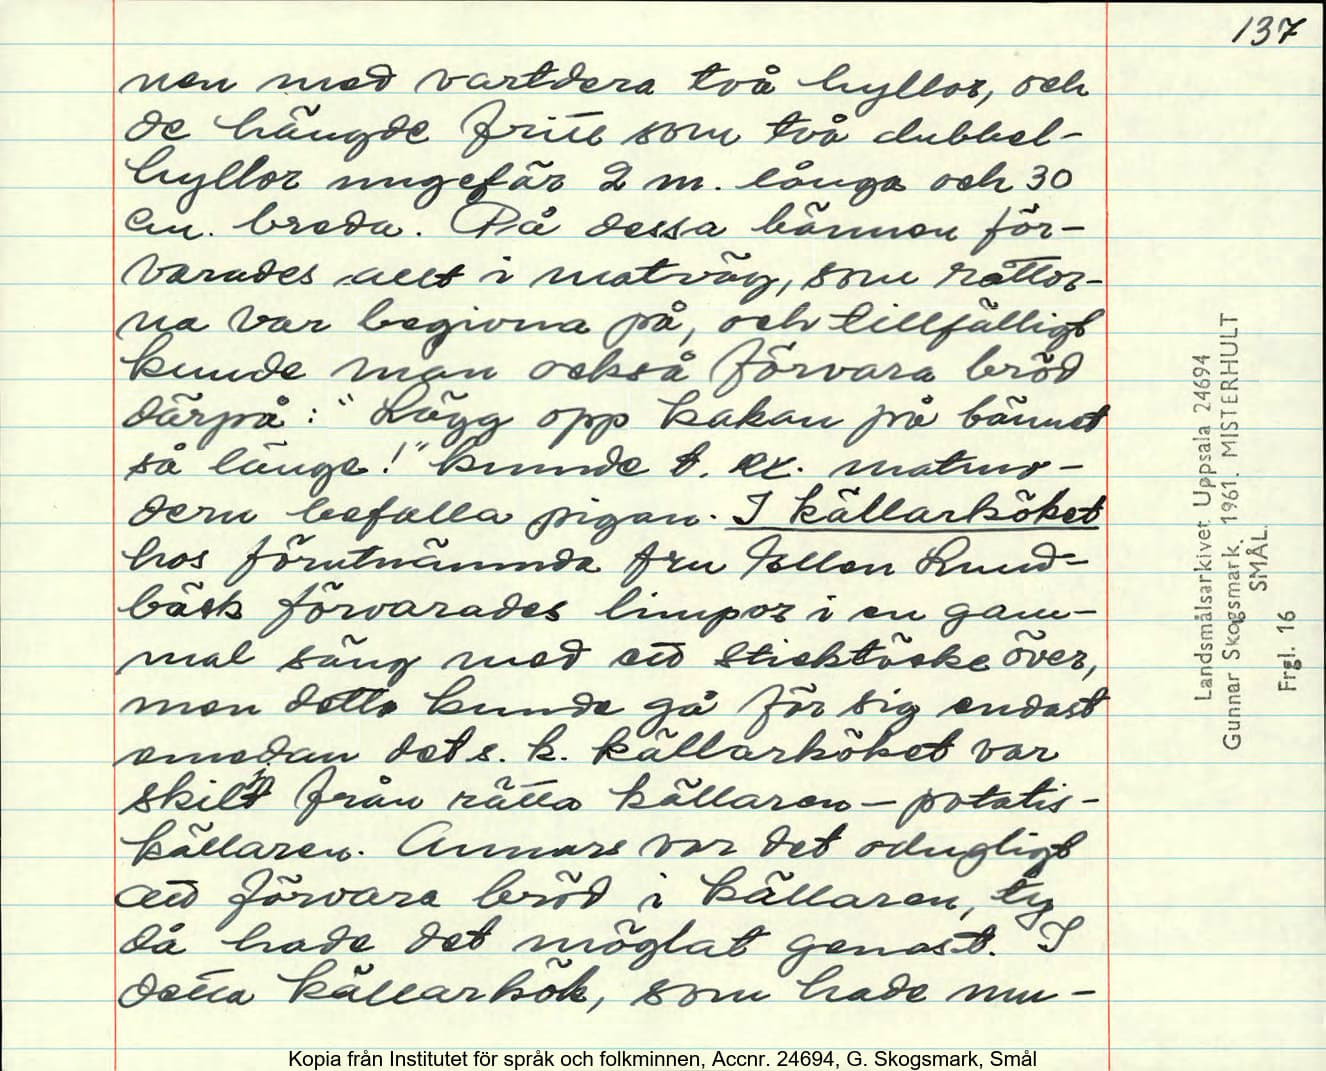 137
nen med vartdera två hyllor, och
de hängde fritt som två dubbel-
hyllor ungefär 2 m. långa och 30
cm. breda. På dessa bännen för-
varades allt i matväg, som råttor-
na var begivna på, och tillfälligt
kunde man också förvara bröd
därpå: "Lägg opp kakan på bännet
så länge!" kunde t. ex. matmo-
dern befalla pigan. I källarköket
hos förutnämnda fru Ellen Lund-
bäck förvarades limpor i en gam-
mal säng med ett sticktäcke över,
men detta kunde gå för sig endast
emedan det s. k. källarköket var
skilt från rätta källaren – potatis-
källaren. Annars var det odugligt
att förvara bröd i källaren, ty
då hade det möglat genast. I
detta källarkök, som hade mu-
Landsmålsarkivet Uppsala 24694
Gunnar Skogsmark. 1961. MISTERHULT
SMÅL.
Frgl. 16
Kopia från Institutet för språk och folkminnen, Accnr. 24694, G. Skogsmark, Smål